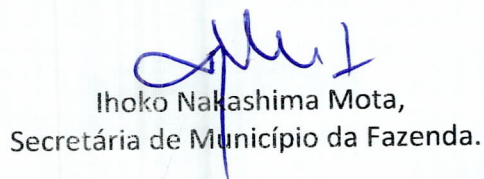 Ihoko Nakashima Mota,
Secretária de Município da Fazenda.